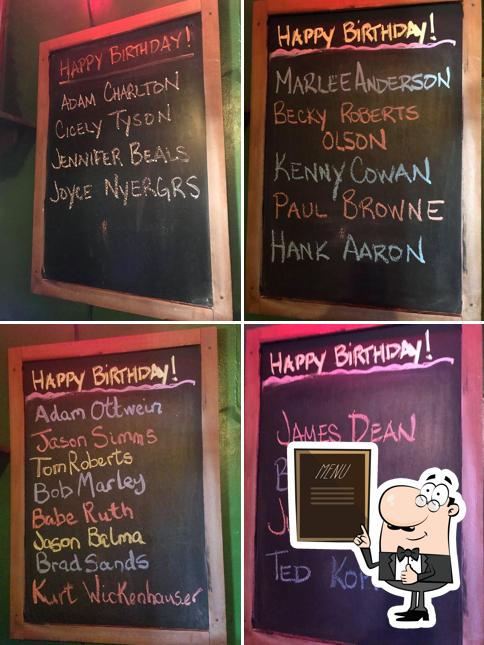 HAPPY BIRTHDAY!
ADAM CHARLTON
CICELY TYSON
JENNIFER BEALS
JOYCE NYERGRS
HAPPY BIRTHDAY!
MARLEE ANDERSON
BECKY ROBERTS
OLSON
KENNY COWAN
PAUL BROWNE
HANK AARON
HAPPY BIRTHDAY!
Adam Ottwein
Jason Simms
Tom Roberts
Bob Marley
Babe Ruth
Jason Balma
Brad Sands
Kurt Wickenhauser
HAPPY BIRTHDAY!
JAMES DEAN
MENU
TED